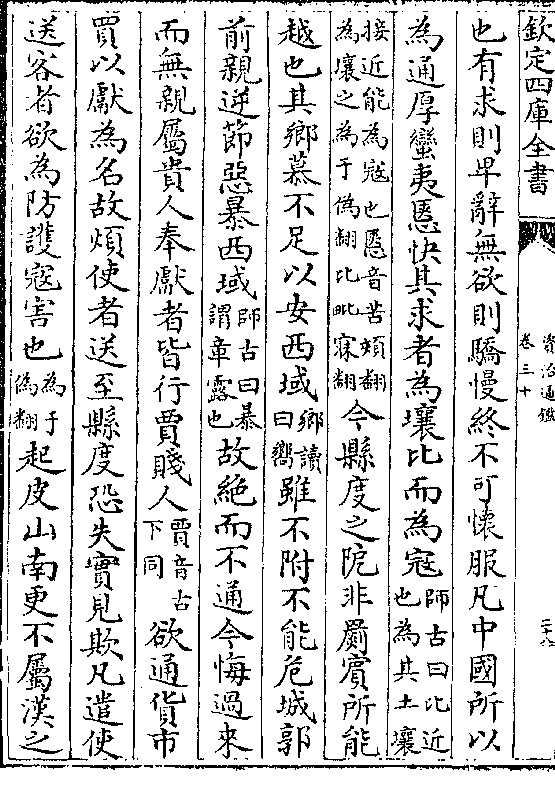 欽定四庫全書
資治通鑑
卷三十
也有求則卑辭無欲則驕慢終不可懷服凡中國所以
為通厚蠻夷㥦快其求者為壤比而為寇師古曰比近也為其土壤
接近能為寇也㥦音苦頰翻為壤之為于偽翻比毗寐翻今縣度之阨非罽賔所能
越也其鄉慕不足以安西域鄉讀曰嚮雖不附不能危城郭
前親逆節惡暴西域師古曰暴謂章露也故絶而不通今悔過來
而無親屬貴人奉獻者皆行賈賤人賈音古下同欲通貨市
賈以獻為名故煩使者送至縣度恐失實見欺凡遣使
送客者欲為防護寇害也為于偽翻起皮山南更不屬漢之